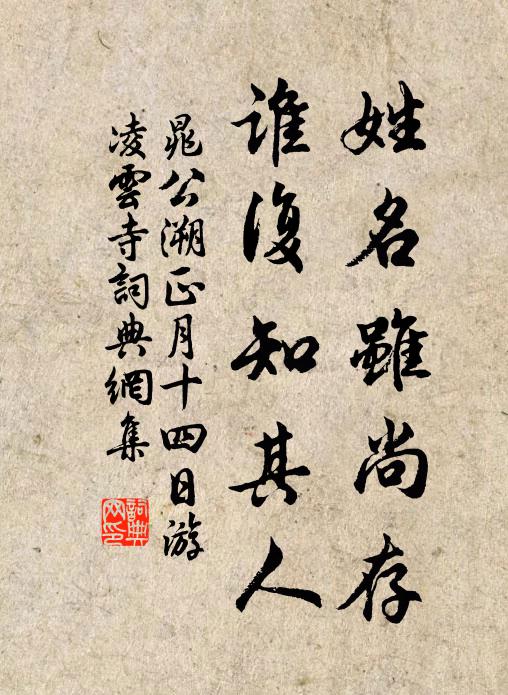 姓名雖尚存
誰復知其人
晁公溯正月十四日游
凌雲寺詞典網集
詞典網印